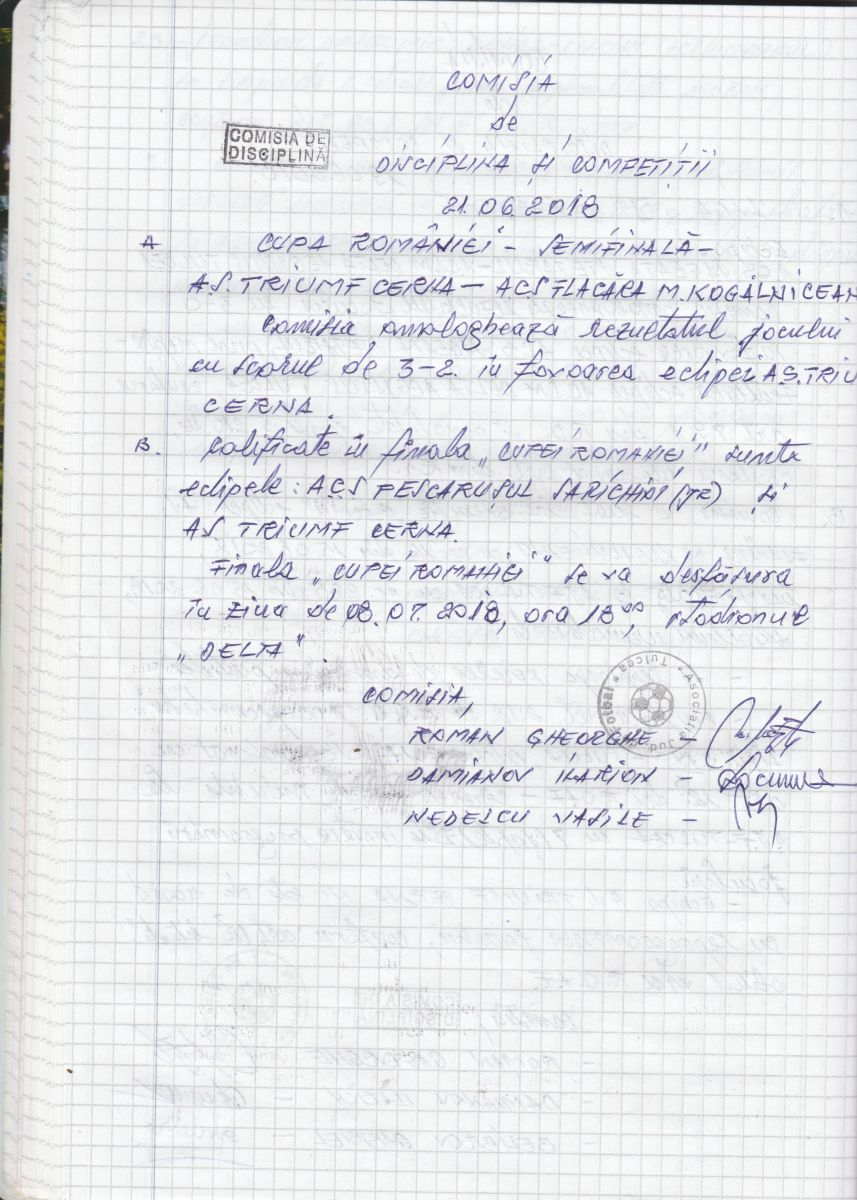 COMISIA
de
COMISIA DE
DISCIPLINĂ
DISCIPLINA ȘI COMPETIȚII
21.06.2018
A CUPA ROMÂNIEI - SEMIFINALĂ -
A.S. TRIUMF CERNA - ACS FLACĂRA M. KOGĂLNICEAN
Comisia omologhează rezultatul jocului
cu scorul de 3-2. în favoarea echipei A.S. TRIU
CERNA.
B. Calificate în finala „CUPEI ROMANIEI" sunt
echipele: ACS PESCARUSUL SARICHIOI (TR) și
A.S. TRIUMF CERNA.
Finala „CUPEI ROMANIEI" se va desfășura
în ziua de 08.07.2018, ora 18⁰⁰, stadionul
„DELTA".
Asociația Jud Fotbal * Tulcea *
COMISIA,
ROMAN GHEORGHE -
DAMIANOV ILARION -
NEDELCU VASILE -